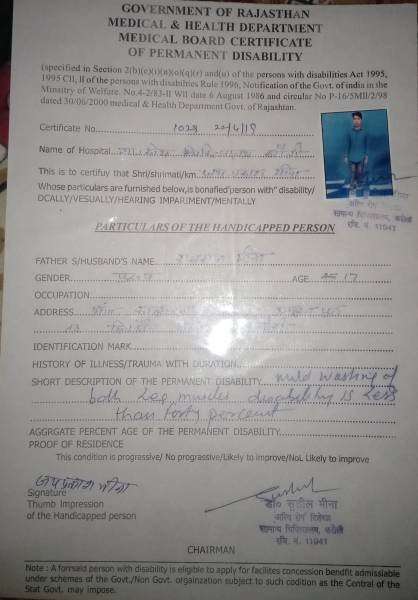 GOVERNMENT OF RAJASTHAN
MEDICAL & HEALTH DEPARTMENT
MEDICAL BOARD CERTIFICATE
OF PERMANENT DISABILITY
(specified in Section 2(b)(e)(i)(n)(o)(q)(r) and(u) of the persons with disabilities Act 1995,
1995 CII, II of the persons with disabilities Rule 1996, Notification of the Govt. of india in the
Minsitry of Welfare. No.4-2/83-II WII date 6 August 1986 and circular No P-16/5MII/2/98
dated 30/06/2000 medical & Health Department Govt. of Rajashtan.
Certificate No. 1029 20/4/18
Name of Hospital
This is to certifuy that Shri/shrimati/km.
Whose particulars are furnished below,is bonafied'person with" disability/
OCALLY/VESUALLY/HEARING IMPARIMENT/MENTALLY
अस्थि रोग
सामान्य चिकित्सालय, करौली
रजि. नं. 11941
PARTICULARS OF THE HANDICAPPED PERSON
FATHER S/HUSBAND'S NAME मीना
GENDER पुरुष AGE 17
OCCUPATION
ADDRESS
IDENTIFICATION MARK
HISTORY OF ILLNESS/TRAUMA WITH DURATION
SHORT DESCRIPTION OF THE PERMANENT DISABILITY mild wasting of
both leg muscles disability is less
than forty percent
AGGRGATE PERCENT AGE OF THE PERMANENT DISABILITY
PROOF OF RESIDENCE
This condition is progressive/ No progressive/Likely to improve/NoL Likely to improve
जयप्रकाश मीना
Signature
Thumb Impression
of the Handicapped person
Sushil
डॉ० सुशील मीना
अस्थि रोग विशेषज्ञ
सामान्य चिकित्सालय, करौली
रजि. नं. 11941
CHAIRMAN
Note : A forrsaid person with disability is eligible to apply for facilites concession bendfit admissiable
under schemes of the Govt./Non Govt. orgainzation subject to such codition as the Central of the
Stat Govt. may impose.